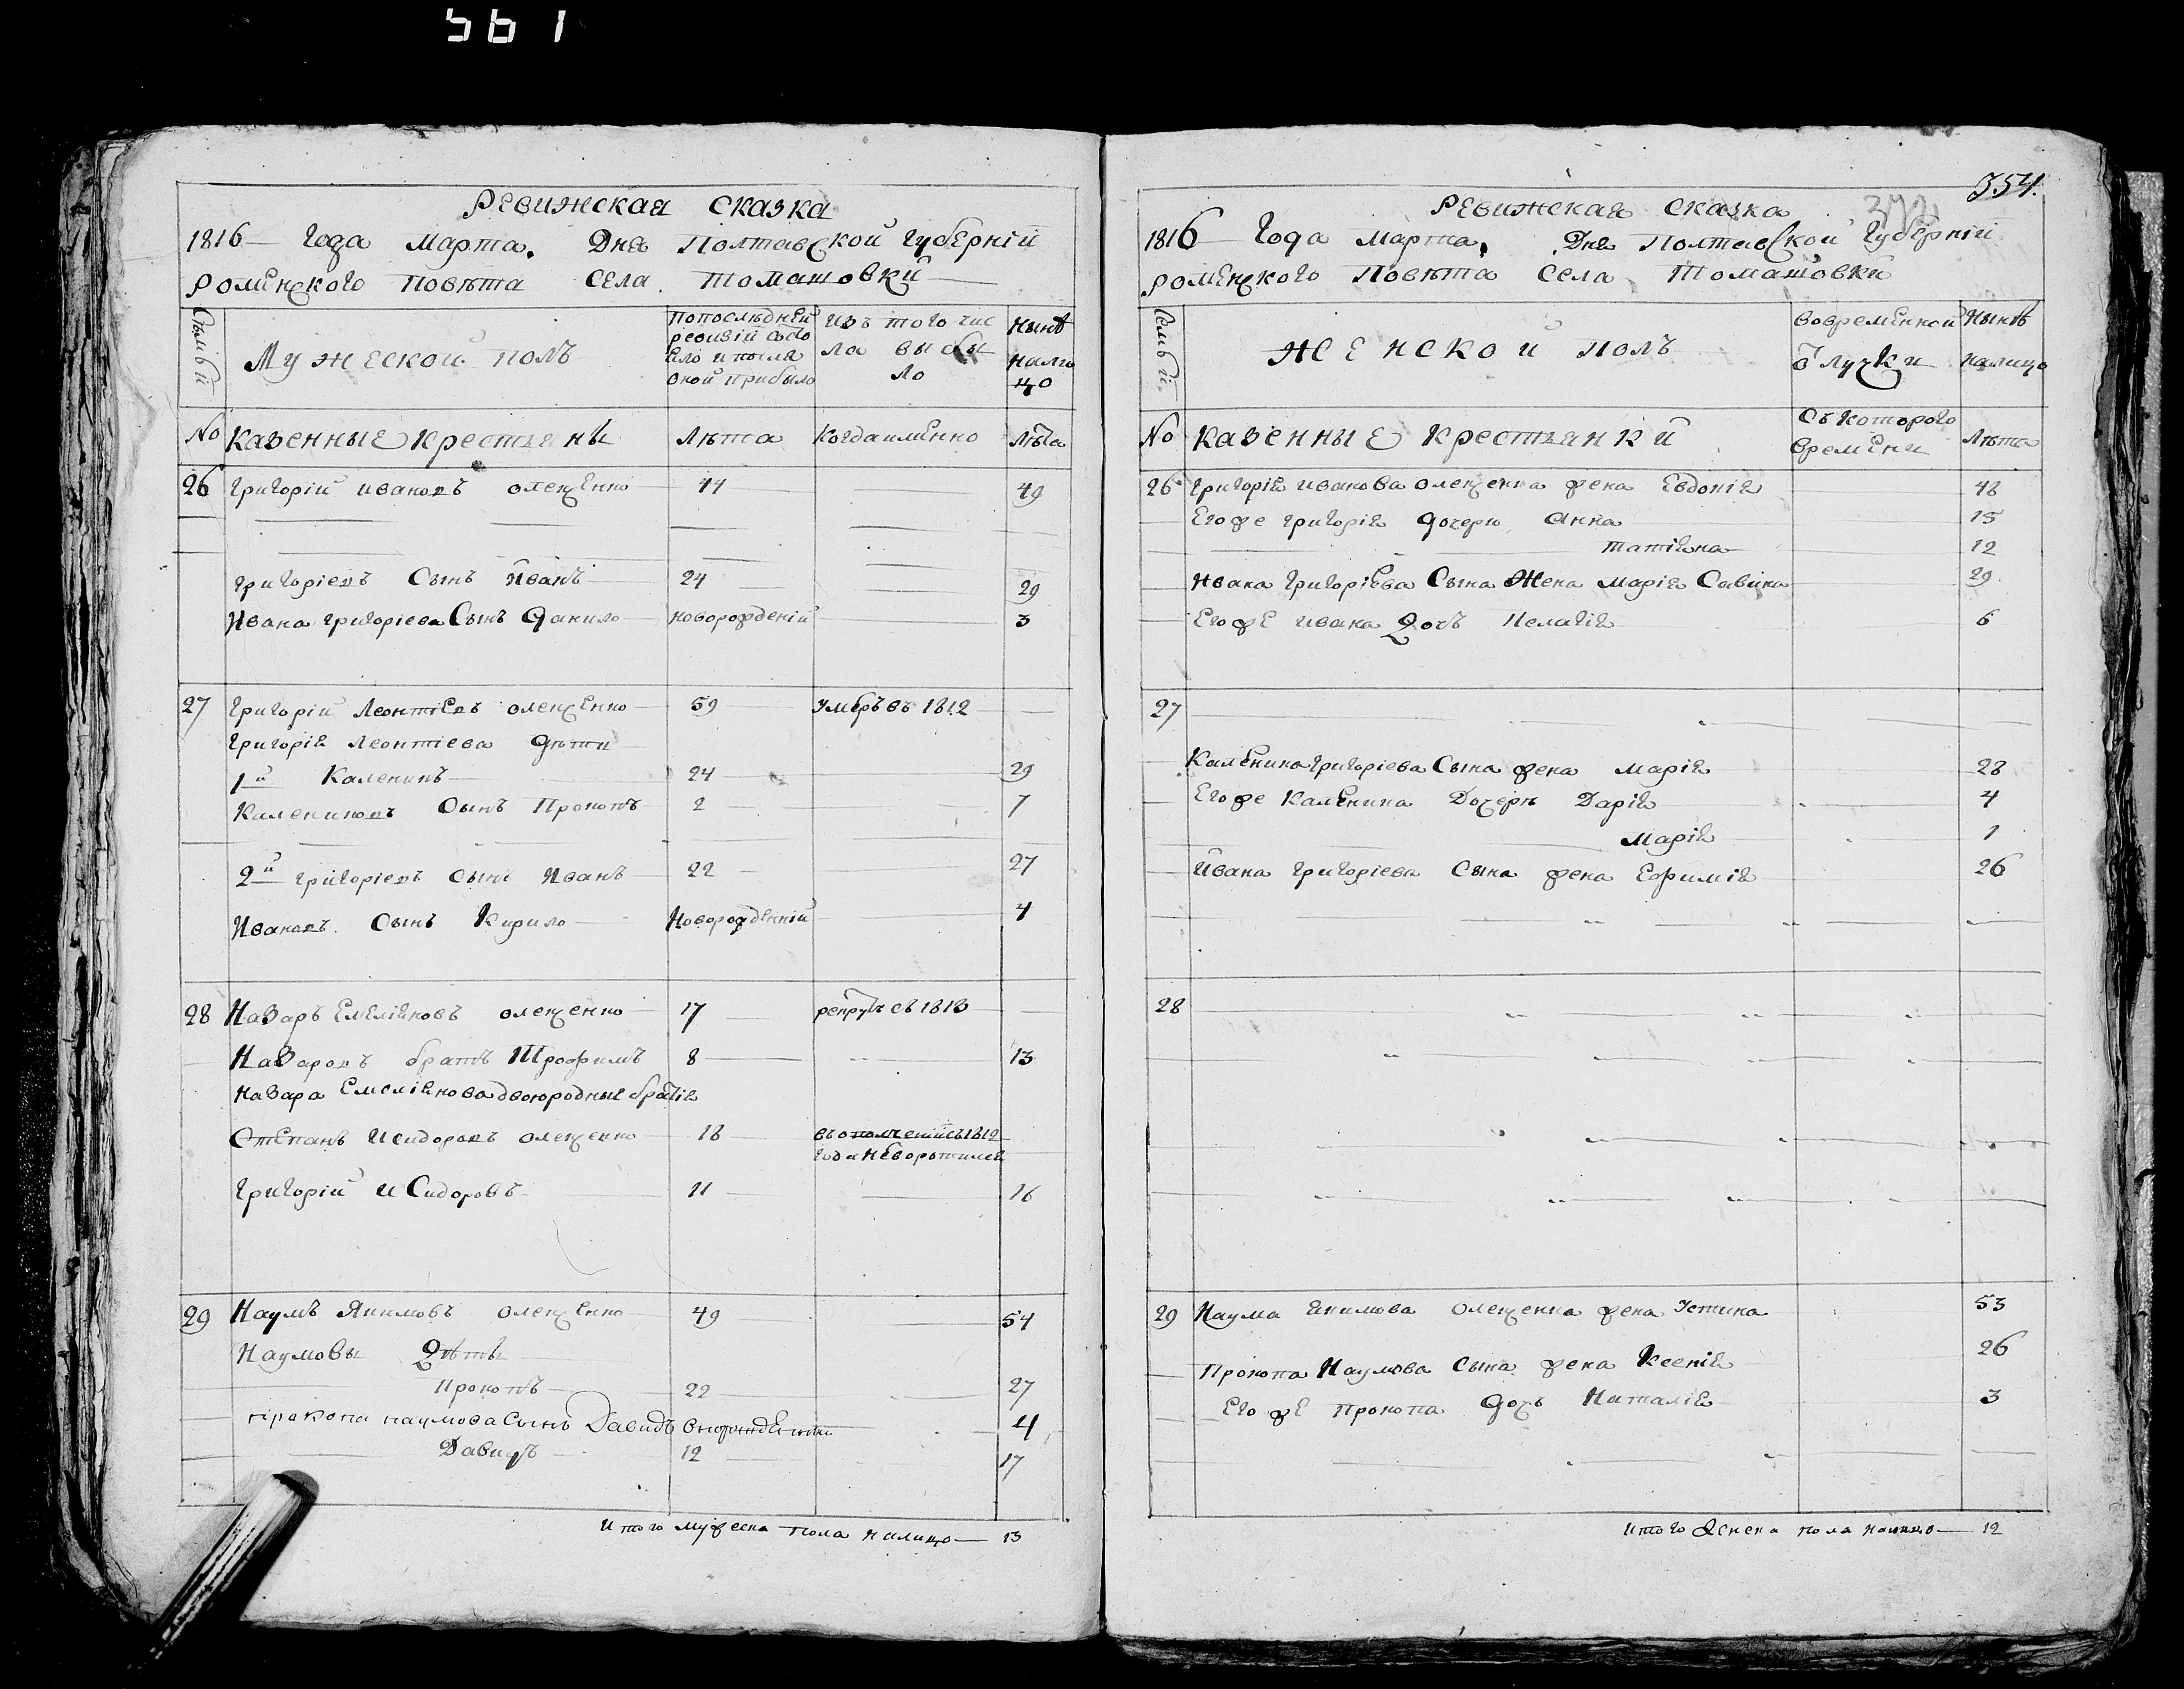 561
Ревижская сказка
1816 Года Марта. Дня Полтавской Губерніи
Роменского Повѣта Села Томашовки
Семьи
Мужеской полъ
По последней ревизіи состояло и после оной прибыло
Изъ того числа выбыло
Нынѣ налицо
№
Казенные Крестьяны
Лѣта
Когда именно
Лѣта
26 Григорій Ивановъ Олещенко 44 49
Григоріевъ Сынъ Иванъ 24 29
Ивана Григоріева Сынъ Данило новорожденій 3
27 Григорій Леонтіевъ Олещенко 59 умеръ въ 1812
Григорія Леонтіева дѣти
1й Каленикъ 24 29
Калениковъ Сынъ Прокопъ 2 7
2й Григоріевъ Сынъ Иванъ 22 27
Ивановъ Сынъ Кирило Новорожденній 4
28 Назаръ Емеліяновъ Олещенко 17 рекрутъ съ 1813
Назаровъ братъ Трофимъ 8 13
Назара Емеліянова двоюродные братія
Степанъ Исидоровъ Олещенко 18 въ ополченіи съ 1812
года неворотился
Григорій Исидоровъ 11 16
29 Наумъ Якимовъ Олещенко 49 54
Наумовы Дѣти
Прокопъ 22 27
Прокопа Наумова Сынъ Давидъ 4
Давидъ 12 17
Итого мужеска пола налицо 13
354.
Ревижская сказка
1816 Года Марта. Дня Полтавской Губерніи
Роменского Повѣта Села Томашовки
Семьи
Женской полъ
Во временной отлучки
Нынѣ налицо
№
Казенные Крестьянки
Съ которого времени
Лѣта
26 Григорія Иванова Олещенка жена Евдокія 48
Его же Григорія дочери Анна 15
Татіяна 12
Ивана Григоріева Сына Жена Марія Савина 29
Его же Ивана Дочь Пелагія 6
27
Каленика Григоріева Сына жена Марія 28
Его же Каленика Дочери Дарія 4
Марія 1
Ивана Григоріева Сына жена Ефимія 26
28
29 Наума Якимова Олещенка жена Устина 53
Прокопа Наумова Сына жена Ксенія 26
Его же Прокопа Дочь Наталія 3
Итого Женска пола налицо 12